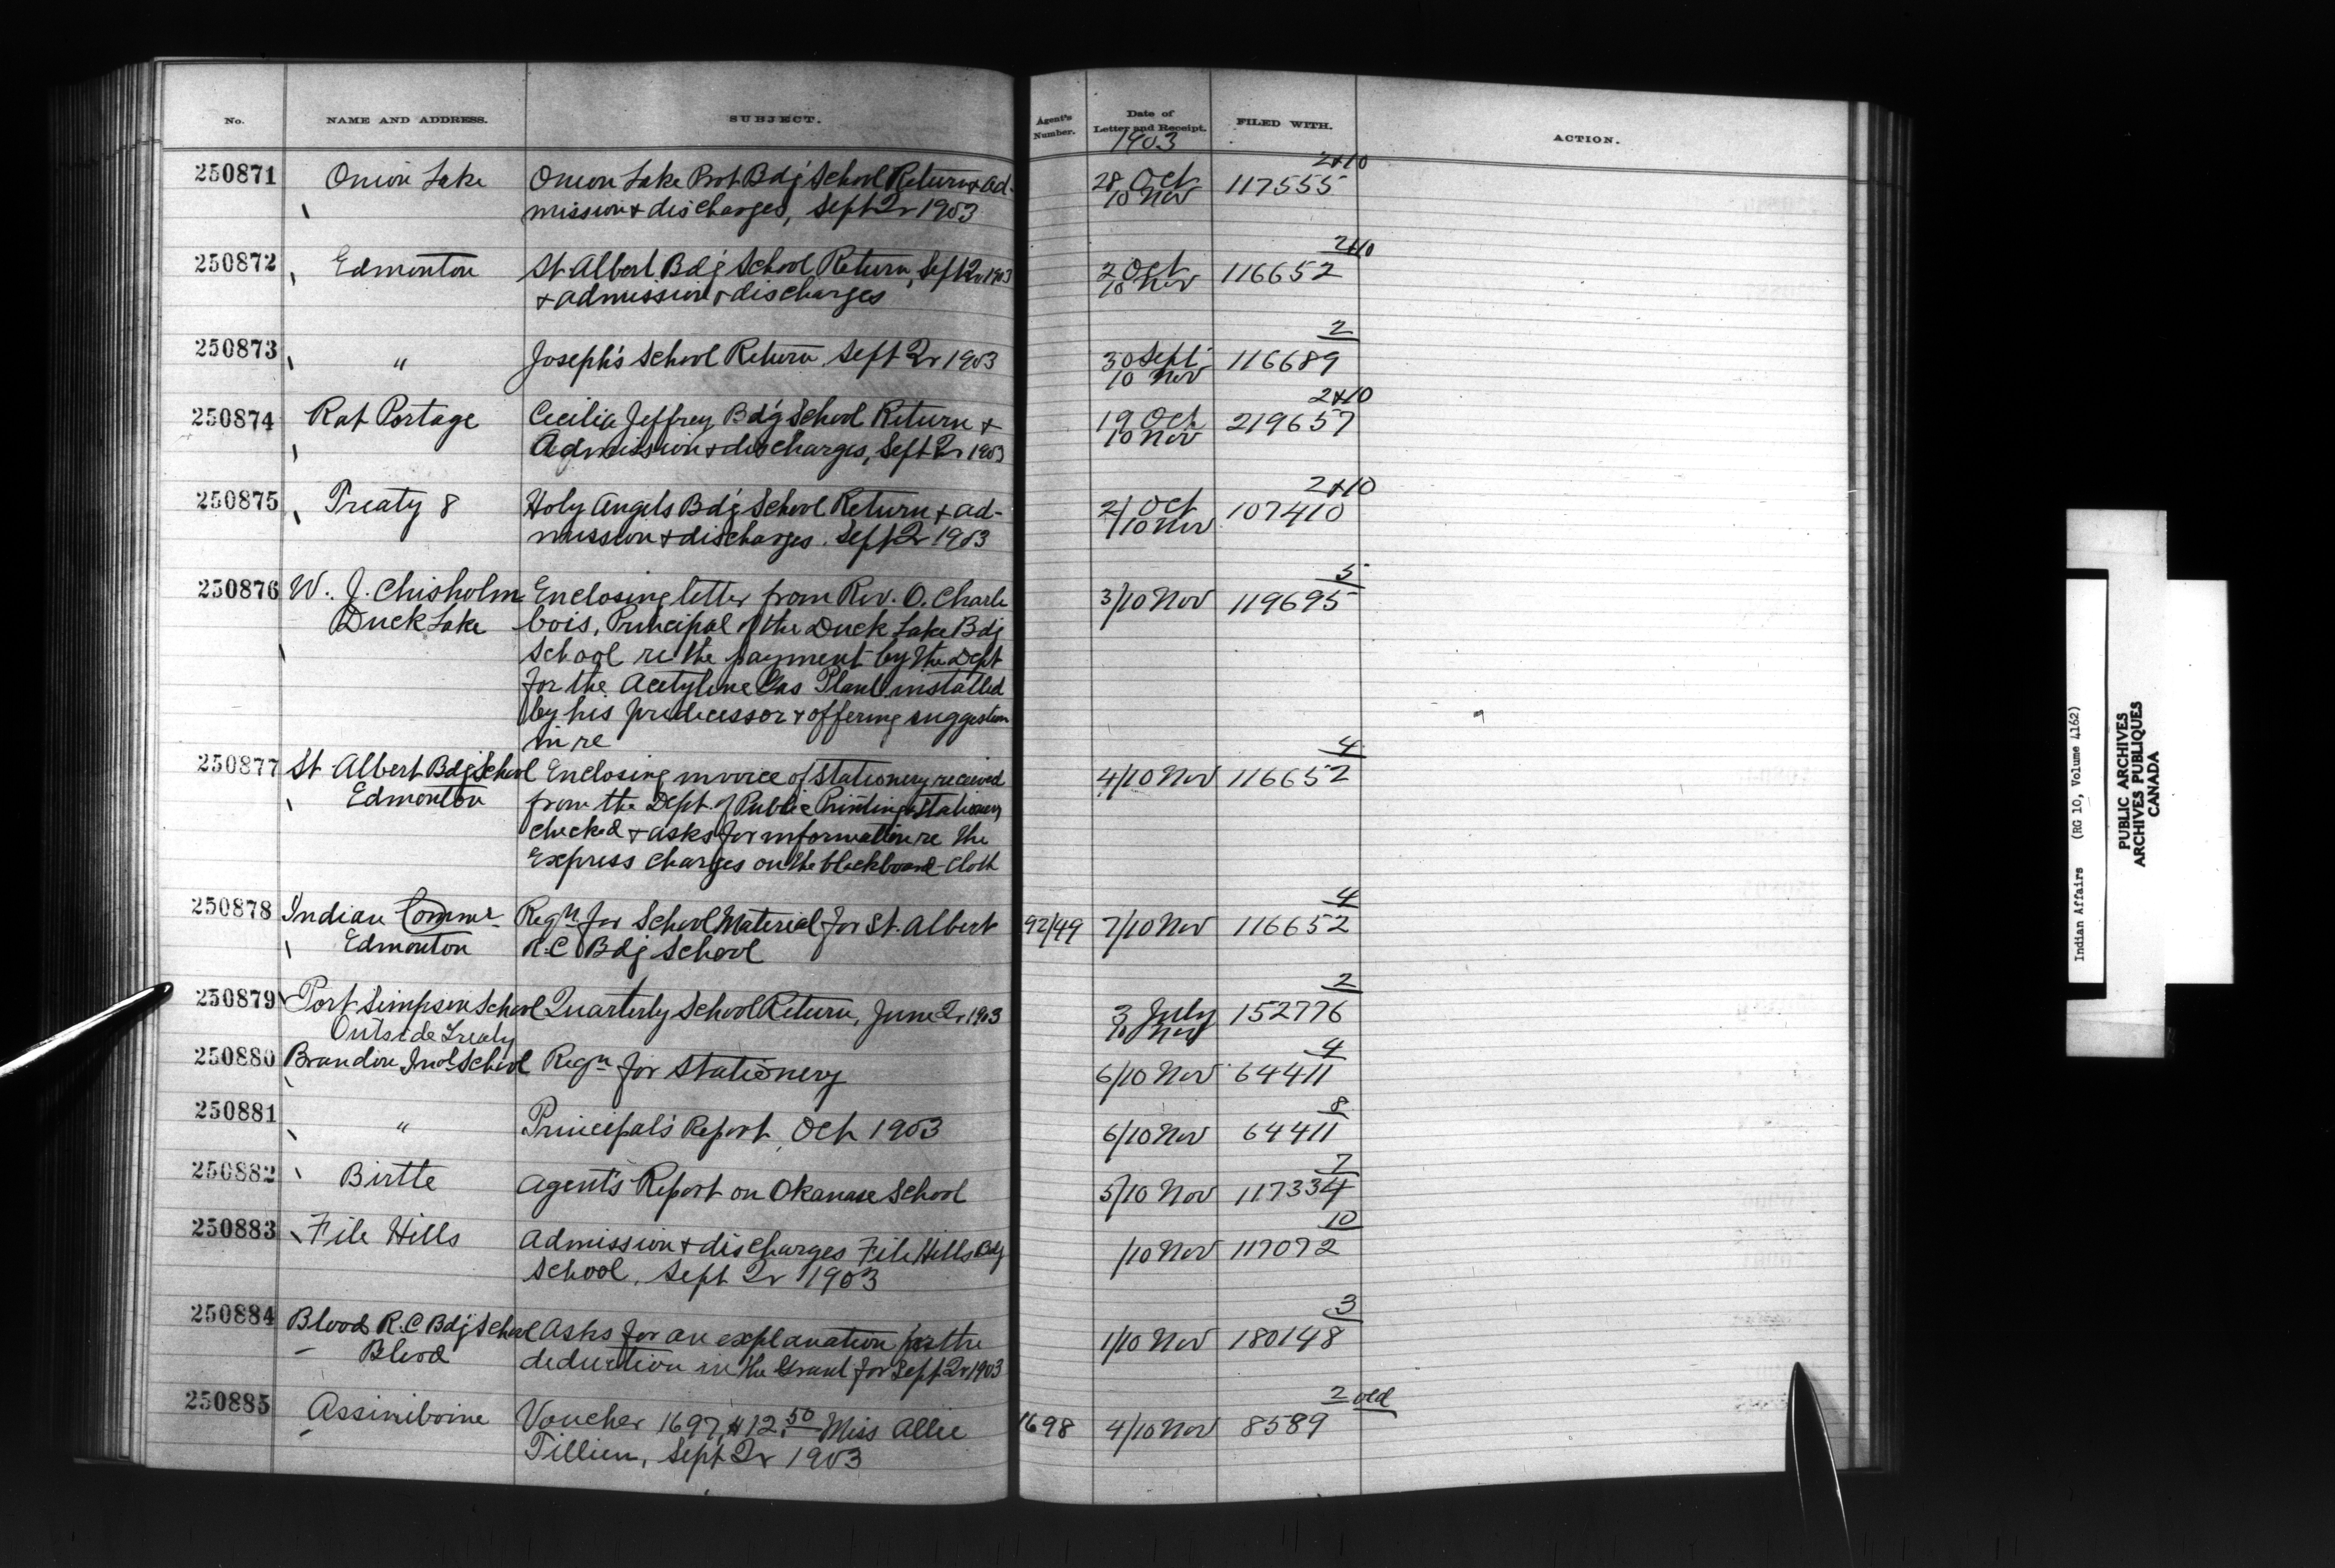 No. NAME AND ADDRESS. SUBJECT. Agent's Number. Date of Letter and Receipt. FILED WITH. ACTION.
1903
250871 Onion Lake Onion Lake Prot Bdg School Return & ad- 28 Oct 117555 2+10
mission & discharges, Sept Qr 1903 10 Nov
250872 Edmonton St Albert Bdg School Return, Sept Qr 1903 2 Oct 116652 2+10
& admission & discharges 10 Nov
250873 " Joseph's School Return Sept Qr 1903 30 Sept 116689 2
10 Nov
250874 Rat Portage Cecilia Jeffrey Bdg School Return & 19 Oct 219657 2+10
Admission & discharges, Sept Qr 1903 10 Nov
250875 Treaty 8 Holy Angels Bdg School Return & ad- 21 Oct 107410 2+10
mission & discharges. Sept Qr 1903 /10 Nov
250876 W. J. Chisholm Enclosing letter from Rev. O. Charle 3/10 Nov 119695 5
Duck Lake bois, Principal of the Duck Lake Bdg
School re the payment by the Dept
for the Acetylene Gas Plant installed
by his predecessor & offering suggestion
in re
250877 St Albert Bdg School Enclosing invoice of Stationery received 4/10 Nov 116652 4
Edmonton from the Dept. of Public Printing & Stationery
checked & asks for information re the
Express charges on the blackboard-cloth
250878 Indian Commr Reqn for School Material for St. Albert 92/49 7/10 Nov 116652 4
Edmonton R.C Bdg School
250879 Port Simpson School Quarterly School Return, June Qr 1903 3 July 152776 2
Outside Treaty 10 Nov
250880 Brandon Indl School Reqn for Stationery 6/10 Nov 64411 4
250881 " Principal's Report, Oct 1903 6/10 Nov 64411 8
250882 Birtle Agent's Report on Okanase School 5/10 Nov 117334 7
250883 File Hills Admission & discharges File Hills Bdg /10 Nov 117072 10
School, Sept Qr 1903
250884 Blood R.C Bdg School Asks for an explanation for the 1/10 Nov 180148 3
Blood deduction in the Grant for Sept Qr 1903
250885 Assiniboine Voucher 1697, $12.50 Miss Allie 1698 4/10 Nov 8589 2 old
Sept Qr 1903
Indian Affairs (RG 10, Volume 4162)
PUBLIC ARCHIVES
ARCHIVES PUBLIQUES
CANADA